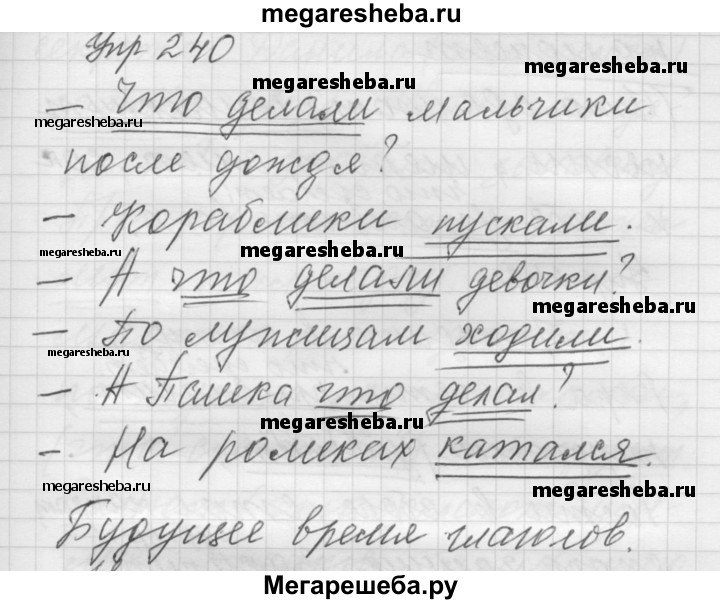 megaresheba.ru
Упр 240
megaresheba.ru
megaresheba.ru
– Что делали мальчики
megaresheba.ru
после дождя?
– Кораблики пускали.
megaresheba.ru
megaresheba.ru
– А что делали девочки?
megaresheba.ru
– По лужицам ходили.
megaresheba.ru
– А Пашка что делал?
megaresheba.ru
– На роликах катался.
megaresheba.ru
megaresheba.ru
Будущее время глаголов.
Мегарешеба.ру